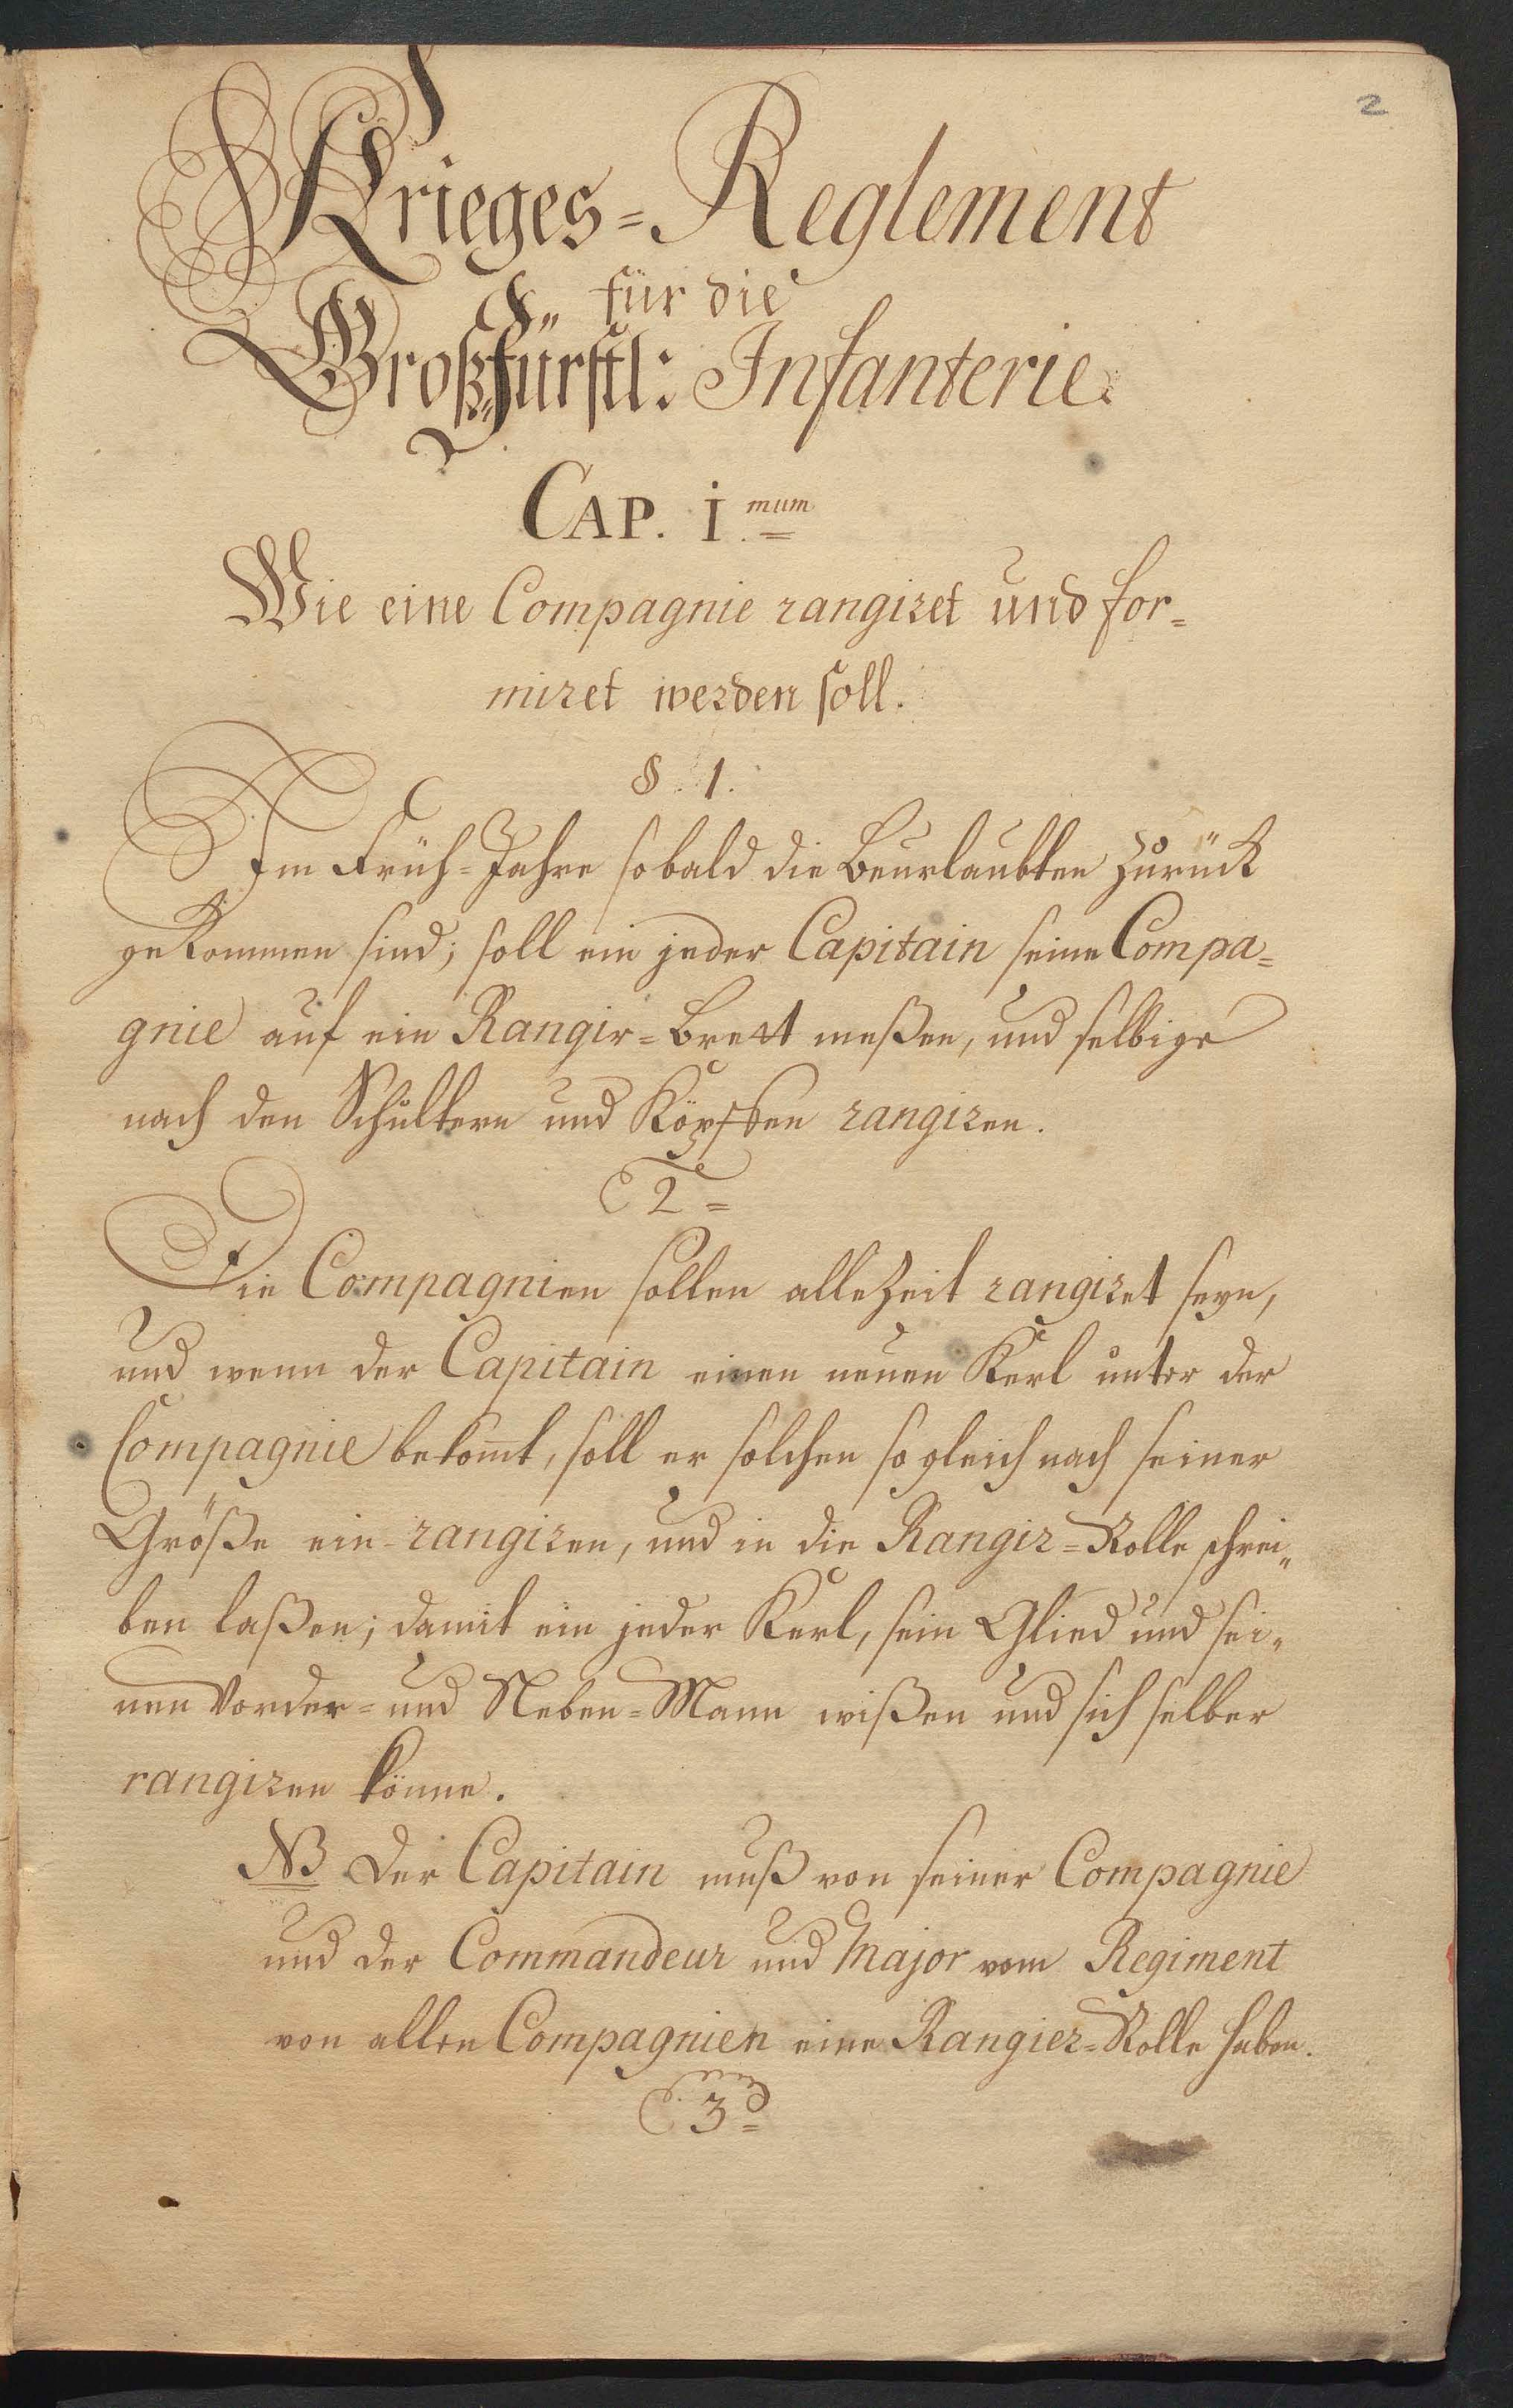 2
Krieges=Reglement
für die
Großfürstl: Infanterie.
CAP. I.mum
Wie eine Compagnie rangiret und for=
miret werden soll.
§. 1.
Im Früh=Jahre so bald die Beurlaubten zurück
gekommen sind; soll ein jeder Capitain seine Compa=
gnie auf ein Rangir=Brett meßen, und selbige
nach den Schultern und Köpffen rangiren.
2=
Die Compagnien sollen alle Zeit rangiret seyn,
und wenn der Capitain einen neuen Kerl unter der
Compagnie bekom̄t, soll er solchen so gleich nach seiner
Größe ein-rangiren, und in die Rangir=Rolle schrei„
ben laßen; damit ein jeder Kerl, sein Glied und sei„
nen Vorder= und Neben=Mann wißen und sich selber
rangiren könne.
NB Der Capitain muß von seiner Compagnie
und der Commandeur und Major vom Regiment
von allen Compagnien eine Rangier=Rolle haben.
3=